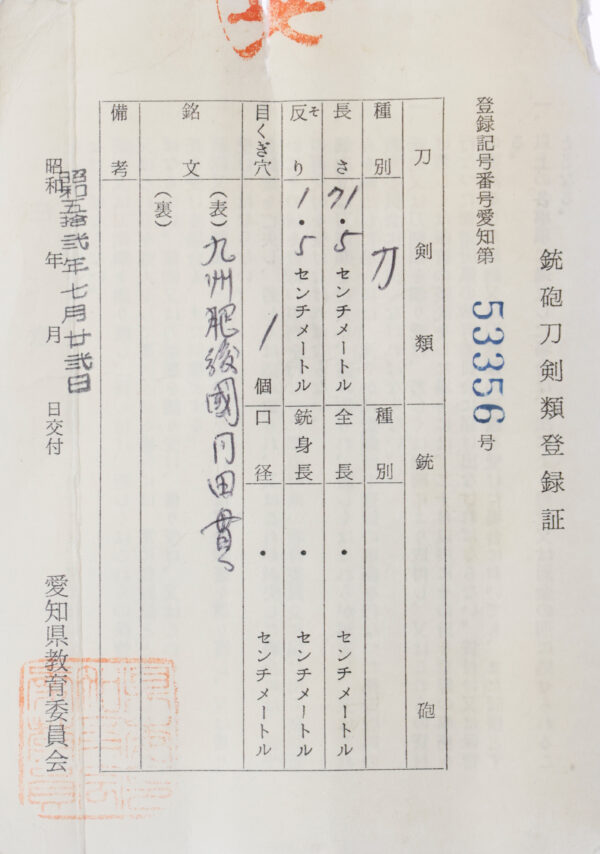 銃砲刀剣類登録証
登録記号番号愛知第 53356 号
刀剣類
銃砲
種別 刀
種別
長さ 71.5 センチメートル
全長 ・ センチメートル
反り そ 1.5 センチメートル
銃身長 ・ センチメートル
目くぎ穴 1 個
口径 ・ センチメートル
銘文 (表) 九州肥後國同田貫
(裏)
備考
昭和 年 月 日交付
昭和五拾弐年七月廿弐日
愛知県教育委員会